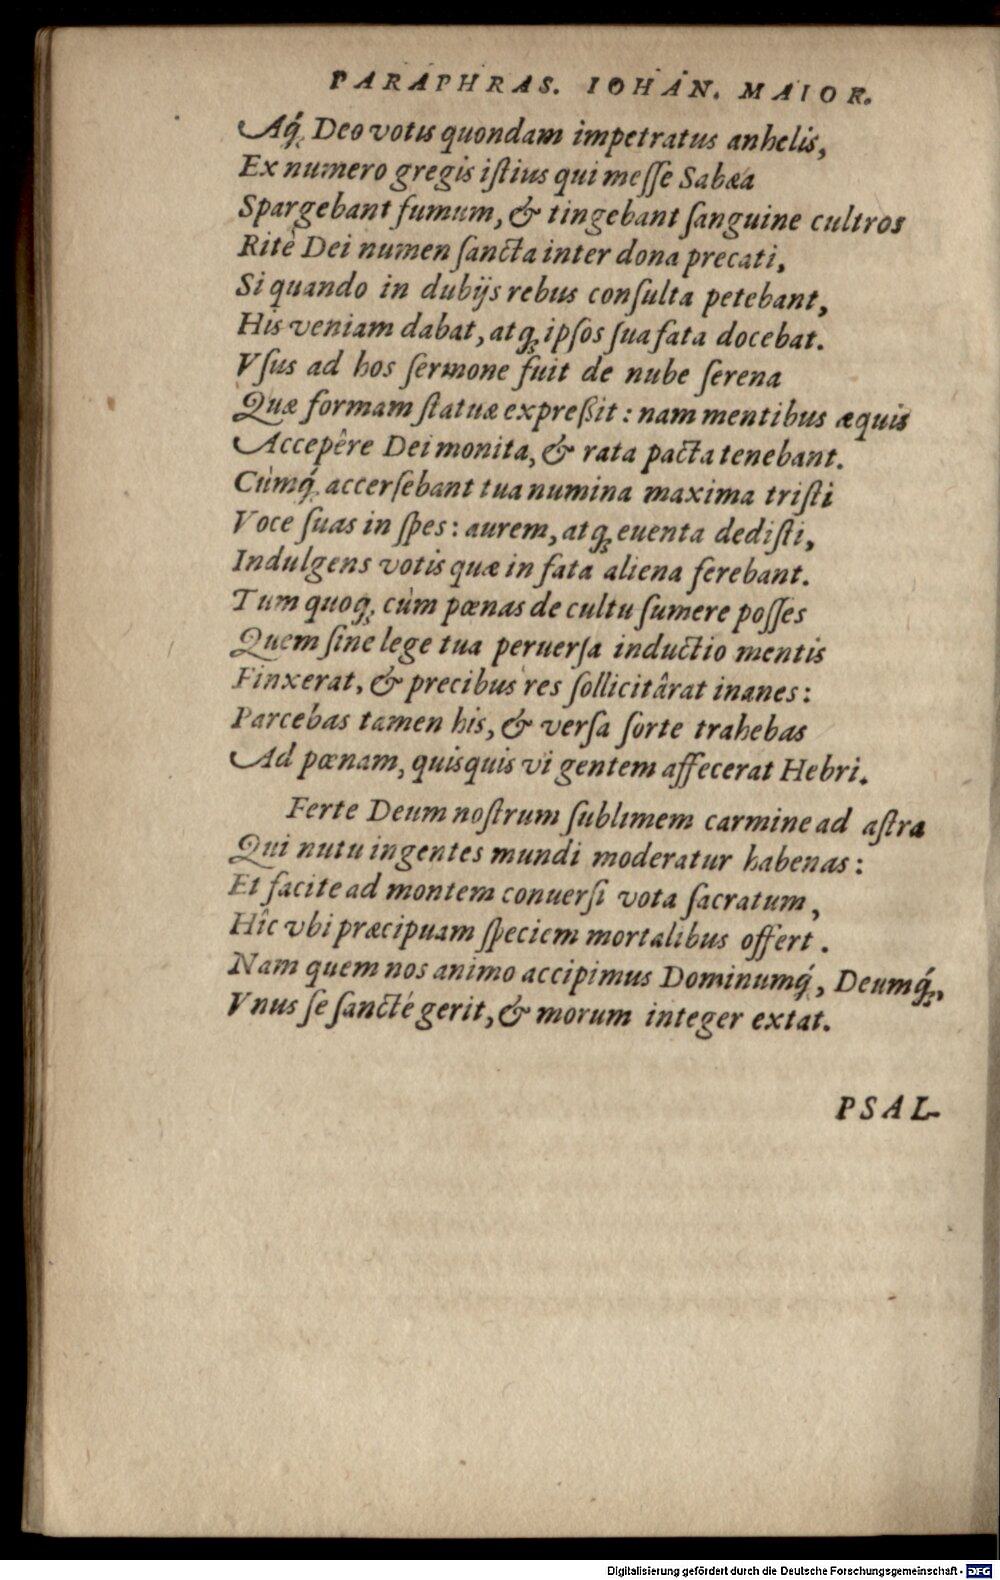 PARAPHRAS. IOHAN. MAIOR.
Aq́; Deo votis quondam impetratus anhelis,
Ex numero gregis iſtius qui meſſe Sabæa
Spargebant fumum, & tingebant ſanguine cultros
Ritè Dei numen ſancta inter dona precati,
Si quando in dubijs rebus conſulta petebant,
His veniam dabat, atq; ipſos ſua fata docebat.
Vſus ad hos ſermone fuit de nube ſerena
Quæ formam ſtatuæ expreßit: nam mentibus æquis
Accepêre Dei monita, & rata pacta tenebant.
Cùmq́; accerſebant tua numina maxima triſti
Voce ſuas in ſpes: aurem, atq; euenta dediſti,
Indulgens votis quæ in fata aliena ferebant.
Tum quoq; cùm pœnas de cultu ſumere poſſes
Quem ſine lege tua peruerſa inductio mentis
Finxerat, & precibus res ſollicitârat inanes:
Parcebas tamen his, & verſa ſorte trahebas
Ad pœnam, quisquis vi gentem affecerat Hebri.
Ferte Deum noſtrum ſublimem carmine ad aſtra
Qui nutu ingentes mundi moderatur habenas:
Et facite ad montem conuerſi vota ſacratum,
Hîc vbi præcipuam ſpeciem mortalibus offert.
Nam quem nos animo accipimus Dominumq́;, Deumq́;,
Vnus ſe ſanctè gerit, & morum integer extat.
PSAL-
Digitalisierung gefördert durch die Deutsche Forschungsgemeinschaft - DFG